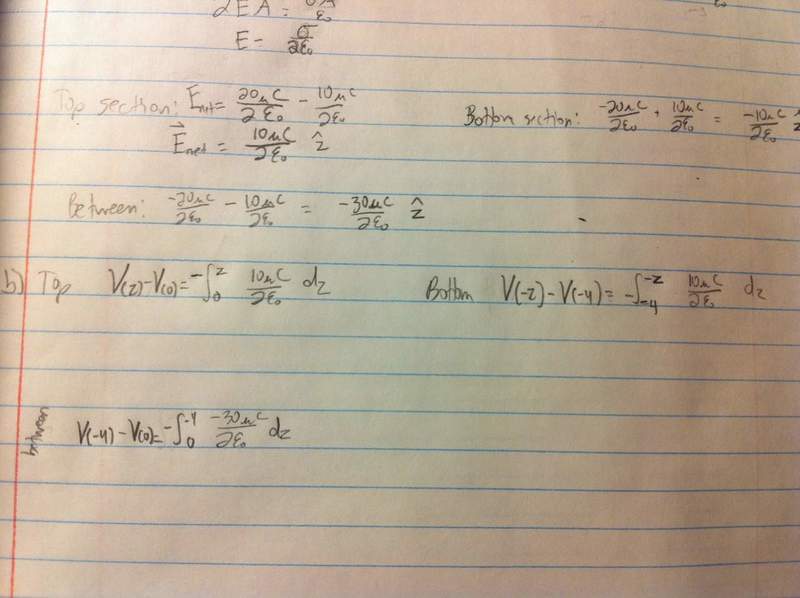 2EA = σA/ε₀
E = σ/2ε₀
Top section: Enet = 20μC/2ε₀ - 10μC/2ε₀
E⃗net = 10μC/2ε₀ ẑ
Bottom section: -20μC/2ε₀ + 10μC/2ε₀ = -10μC/2ε₀ ẑ
Between: -20μC/2ε₀ - 10μC/2ε₀ = -30μC/2ε₀ ẑ
b) Top V(z)-V(0)=-∫₀ᶻ 10μC/2ε₀ dz
Bottom V(-z)-V(-4)=-∫₋₄⁻ᶻ 10μC/2ε₀ dz
between V(-4)-V(0)=-∫₀⁻⁴ -30μC/2ε₀ dz